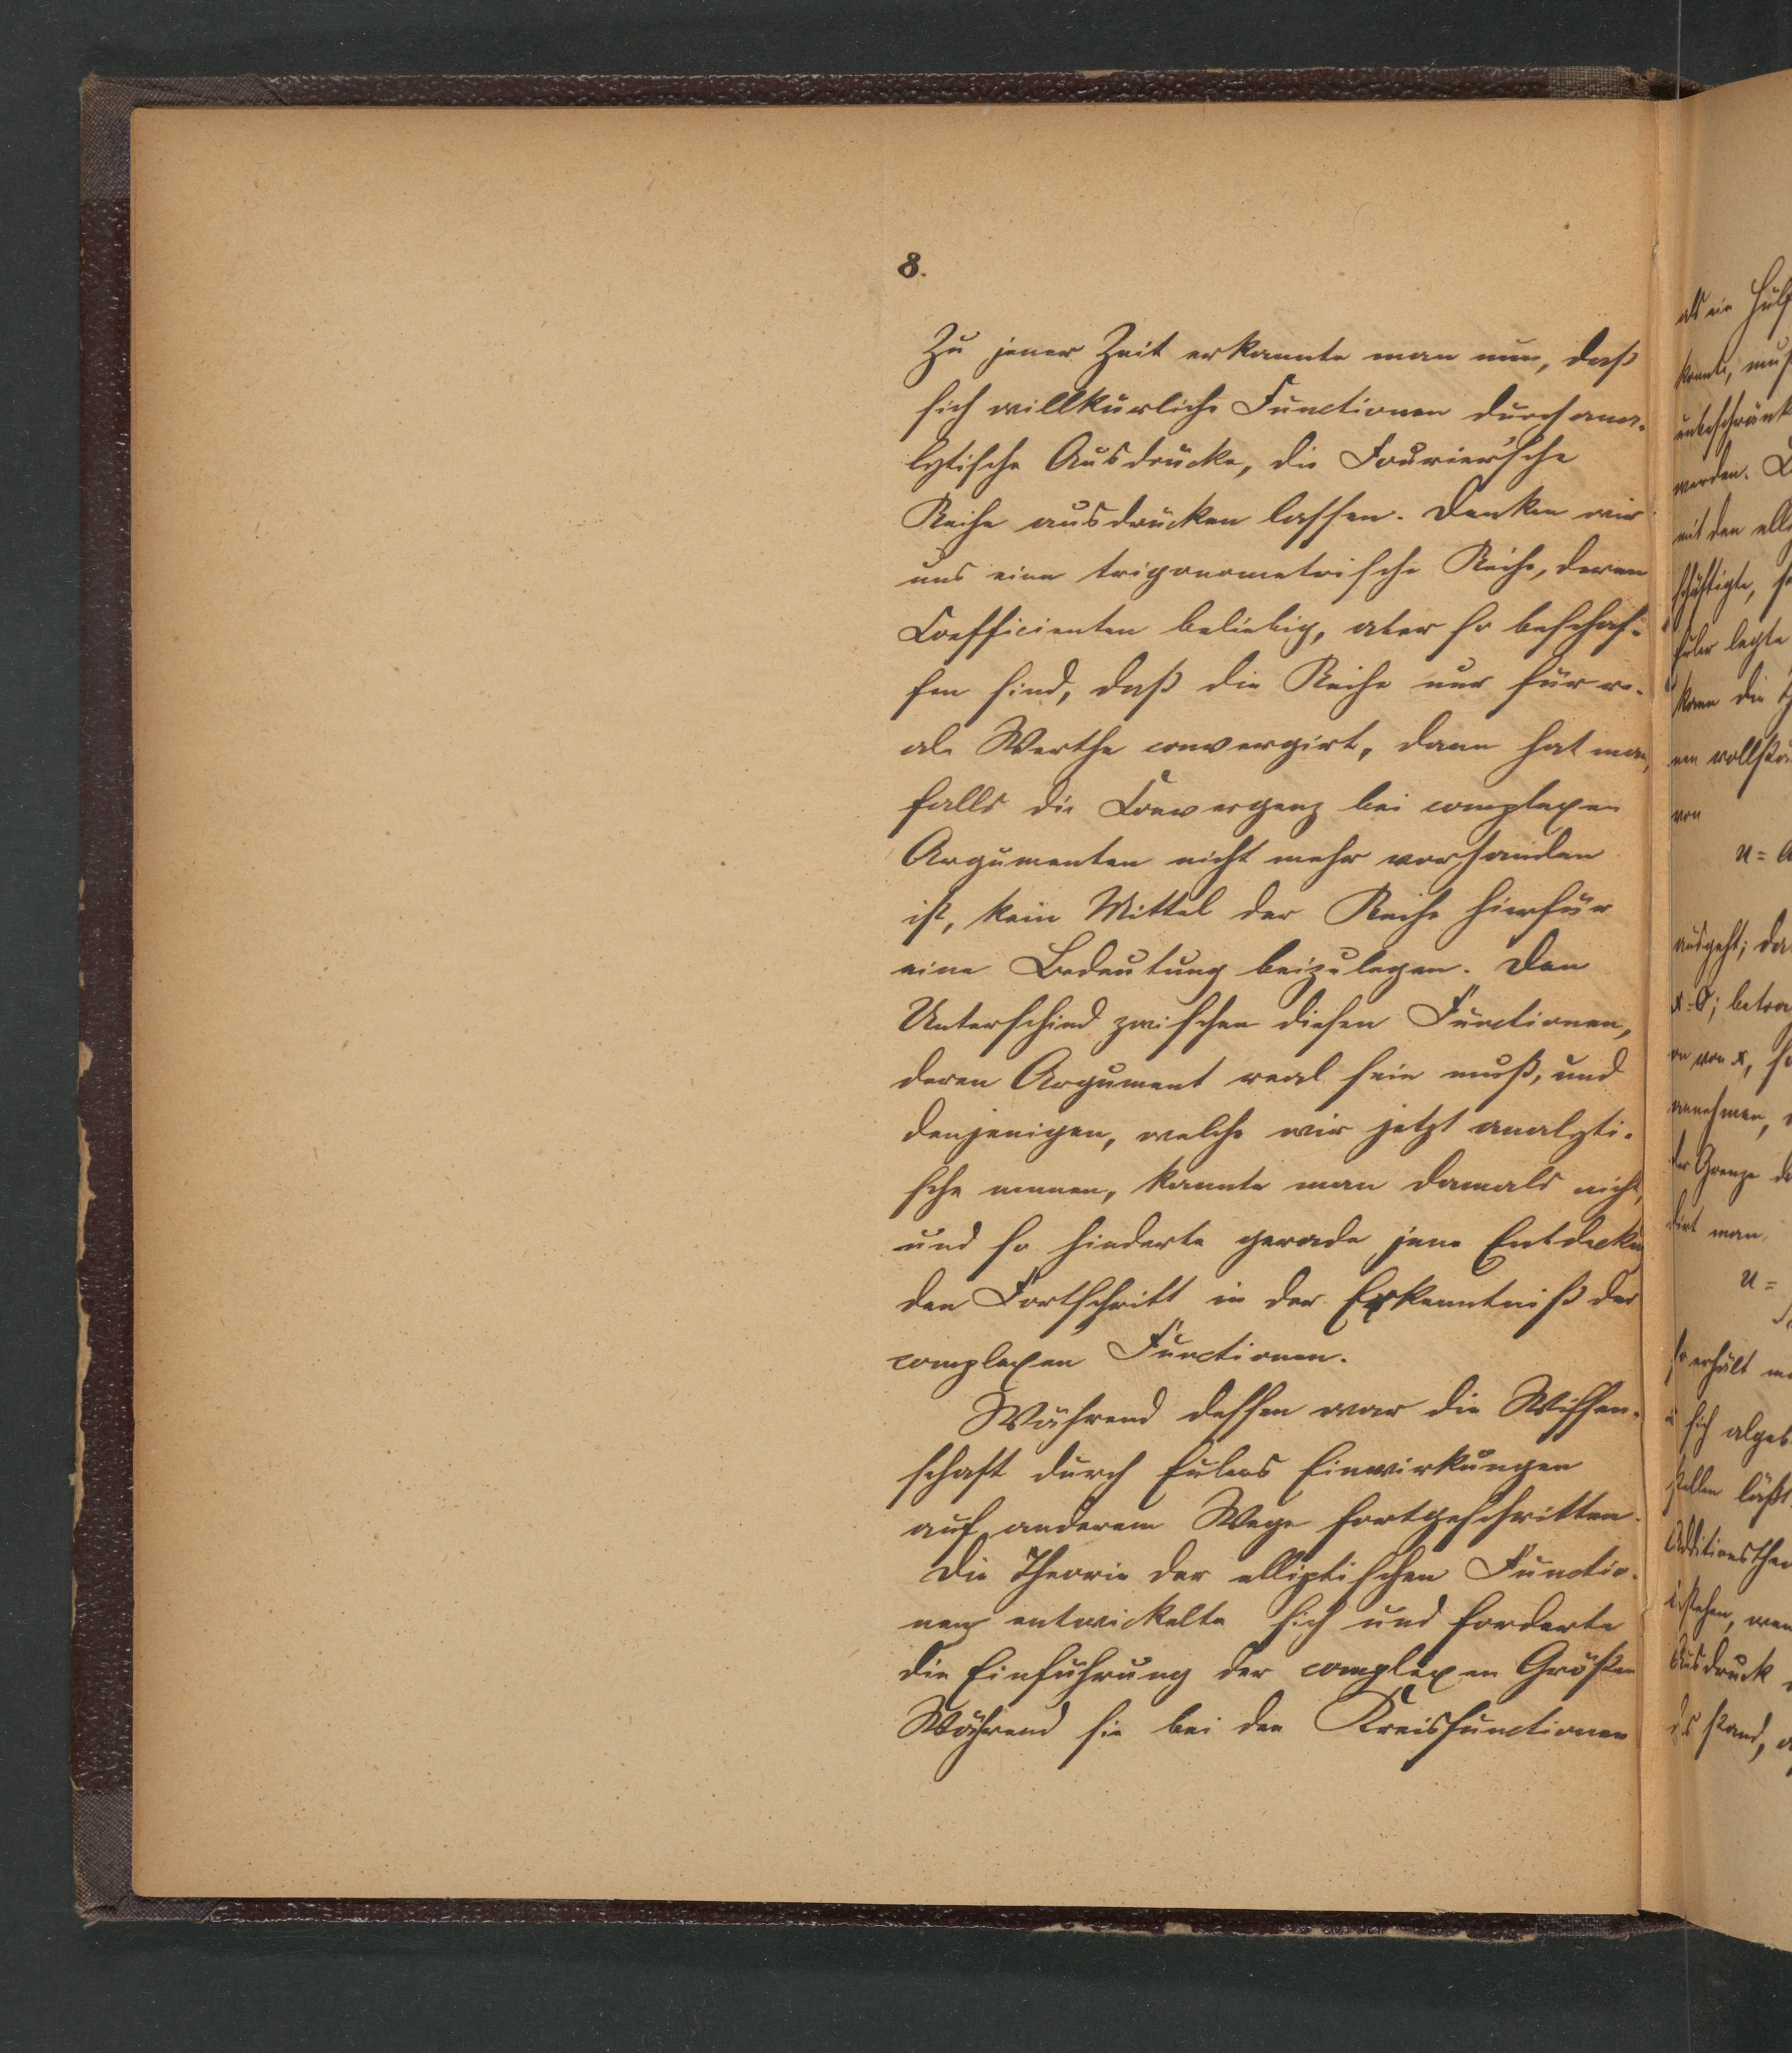 8.
Zu jener Zeit erkannte man nun, daß
sich willkürliche Functionen durch ana-
lytische Ausdrücke, die Fourier'sche
Reihe ausdrücken lassen. Denken wir
uns eine trigonometrische Reihe, deren
Coefficienten beliebig, aber so beschaf-
fen sind, daß die Reihe nur für re-
ale Werthe convergirt, dann hat man,
falls die Convergenz bei complexen
Argumenten nicht mehr vorhanden
ist, kein Mittel der Reihe hierfür
eine Bedeutung beizulegen. Den
Unterschied zwischen diesen Functionen,
deren Argument real sein muß, und
denjenigen, welche wir jetzt analyti-
sche nennen, kannte man damals nicht,
und so hinderte gerade jene Entdecku
den Fortschritt in der Erkenntniß der
complexen Functionen.
Während dessen war die Wissen-
schaft durch Eulers Einwirkungen
auf anderem Wege fortgeschritten.
Die Theorie der elliptischen Functio-
nen entwickelte sich und forderte
die Einführung der complexen Größen
Während sie bei den Kreisfunctionen
als ein Hülf
konnte, muß
unbeschränk
werden.
mit den elli
schäftigte, so
Euler legte
kann die
nen vollstä
von
u =
ausgeht; da
betra
on von x, so
annehmen,
der Grenze
dirt man,
u =
so erhält ma
sich algeb
stellen läßt
Additionstheo
Ausdruck
stand,